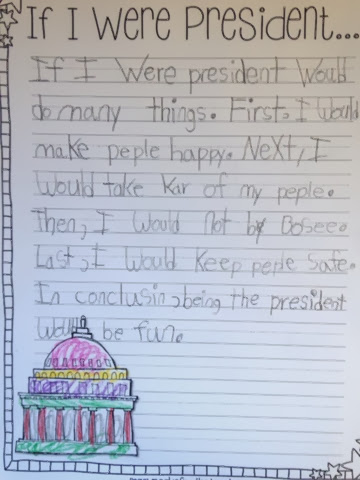 If I Were President...
If I Were president Would
do many things. First, I Would
make peple happy. Next, I
Would take Kar of my peple.
Then, I Would Not by Bosee.
Last, I Would Keep peple Safe.
In conclusin, being the president
Would be fun.